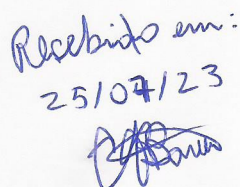 Recebido em:
25/07/23